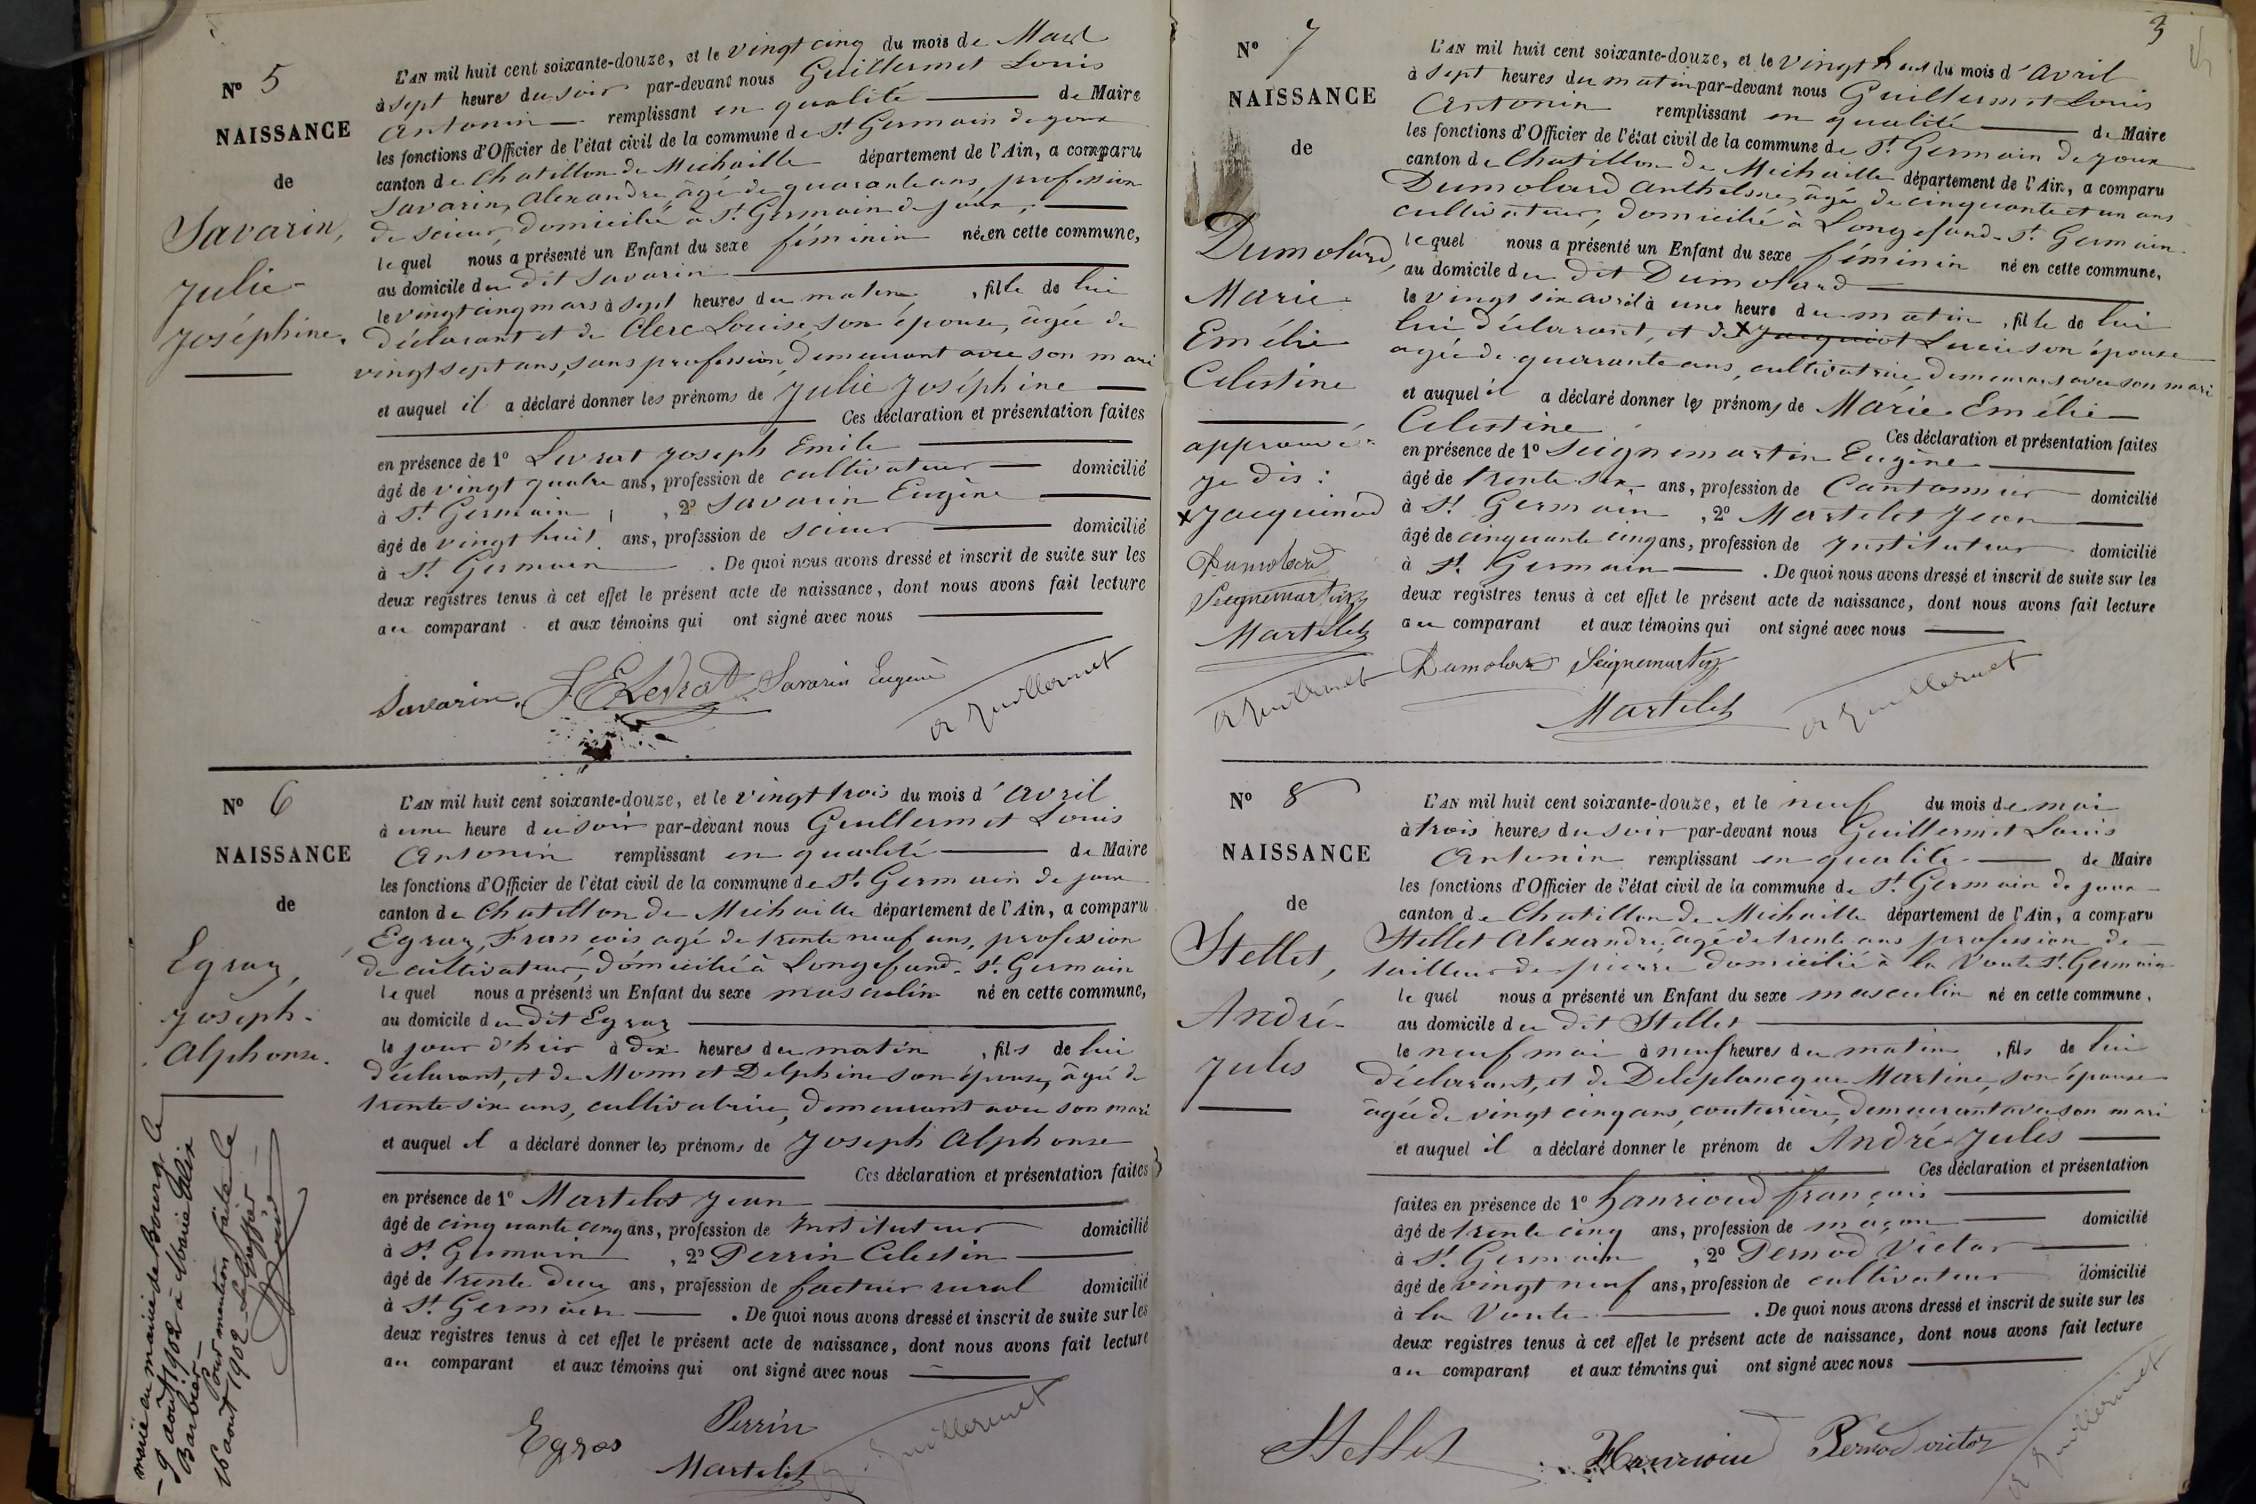 N° 5
NAISSANCE
de
Savarin,
Julie-
Joséphine.
L'AN mil huit cent soixante-douze, et le vingt cinq du mois de Mars
à sept heures du soir par-devant nous Guillermet Louis
Antonin remplissant en qualité de Maire
les fonctions d'Officier de l'état civil de la commune de St Germain de joux
canton de Chatillon de Michaille département de l'Ain, a comparu
Savarin, Alexandre, âgé de quarante ans, profession
de scieur, domicilié à St Germain de joux,
lequel nous a présenté un Enfant du sexe féminin née en cette commune,
au domicile du dit Savarin
le vingt cinq mars à sept heures du matin, fille de lui
déclarant et de Clerc Louise, son épouse, âgée de
vingt sept ans, sans profession, demeurant avec son mari
et auquel il a déclaré donner les prénoms de Julie Joséphine
Ces déclaration et présentation faites
en présence de 1° Levrat Joseph Emile
âgé de vingt quatre ans, profession de cultivateur domicilié
à St Germain, 2° Savarin Eugène
âgé de vingt huit ans, profession de scieur domicilié
à St Germain. De quoi nous avons dressé et inscrit de suite sur les
deux registres tenus à cet effet le présent acte de naissance, dont nous avons fait lecture
au comparant et aux témoins qui ont signé avec nous
Savarin. J E Levrat Savarin Eugène
A Guillermet
N° 6
NAISSANCE
de
Egraz,
Joseph-
Alphonse.
marié en mairie de Bourg le
- 9 août 1902 à Marie Elix
Barbier -
Pour mention faite le
16 août 1902 - Le Greffier -
L'AN mil huit cent soixante-douze, et le vingt trois du mois d'avril
à une heure du soir par-devant nous Guillermet Louis
Antonin remplissant en qualité de Maire
les fonctions d'Officier de l'état civil de la commune de St Germain de joux
canton de Chatillon de Michaille département de l'Ain, a comparu
Egraz, François âgé de trente neuf ans, profession
de cultivateur, domicilié à Longefand-St Germain
lequel nous a présenté un Enfant du sexe masculin né en cette commune,
au domicile du dit Egraz
le jour d'hier à dix heures du matin, fils de lui
déclarant, et de Monnet Delphine son épouse, âgée de
trente six ans, cultivatrice, demeurant avec son mari
et auquel il a déclaré donner les prénoms de Joseph Alphonse
Ces déclaration et présentation faites
en présence de 1° Martelet Jean
âgé de cinquante cinq ans, profession de Instituteur domicilié
à St Germain, 2° Perrin Celestin
âgé de trente deux ans, profession de facteur rural domicilié
à St Germain. De quoi nous avons dressé et inscrit de suite sur les
deux registres tenus à cet effet le présent acte de naissance, dont nous avons fait lecture
au comparant et aux témoins qui ont signé avec nous
Egras Perrin
Martelet A Guillermet
3
N° 7
NAISSANCE
de
Dumolard,
Marie
Emélie
Celestine
approuvé
je dis:
x Jacquinod
Dumolard
Seignemartin
Martelet
A Guillermet
L'AN mil huit cent soixante-douze, et le vingt huit du mois d'avril
à sept heures du matin par-devant nous Guillermet Louis
Antonin remplissant en qualité de Maire
les fonctions d'Officier de l'état civil de la commune de St Germain de joux
canton de Chatillon de Michaille département de l'Ain, a comparu
Dumolard Anthelme, âgé de cinquante et un ans
cultivateur, domicilié à Longefand-St Germain
lequel nous a présenté un Enfant du sexe féminin né en cette commune,
au domicile du dit Dumolard
le vingt six avril à une heure du matin, fille de lui
lui déclarant, et de x Jacquiot Lucie son épouse
agée de quarante ans, cultivatrice, demeurant avec son mari
et auquel il a déclaré donner les prénoms de Marie Emélie
Celestine
Ces déclaration et présentation faites
en présence de 1° Seignemartin Eugène
âgé de trente six ans, profession de Cantonnier domicilié
à St Germain, 2° Martelet Jean
âgé de cinquante cinq ans, profession de Instituteur domicilié
à St Germain. De quoi nous avons dressé et inscrit de suite sur les
deux registres tenus à cet effet le présent acte de naissance, dont nous avons fait lecture
au comparant et aux témoins qui ont signé avec nous
Dumolard Seignemartin
Martelet A Guillermet
N° 8
NAISSANCE
de
Stellet,
André-
Jules
L'AN mil huit cent soixante-douze, et le neuf du mois de mai
à trois heures du soir par-devant nous Guillermet Louis
Antonin remplissant en qualité de Maire
les fonctions d'Officier de l'état civil de la commune de St Germain de joux
canton de Chatillon de Michaille département de l'Ain, a comparu
Stellet Alexandre, âgé de trente ans profession de
tailleur de pierre domicilié à la Voute St Germain
lequel nous a présenté un Enfant du sexe masculin né en cette commune,
au domicile du dit Stellet
le neuf mai à neuf heures du matin, fils de lui
déclarant, et de Deleplancque Martine, son épouse
âgée de vingt cinq ans, couturière, demeurant avec son mari
et auquel il a déclaré donner le prénom de André Jules
Ces déclaration et présentation
faites en présence de 1° hanrioud françois
âgé de trente cinq ans, profession de maçon domicilié
à St Germain, 2° Pernod Victor
âgé de vingt neuf ans, profession de cultivateur domicilié
à la Voute. De quoi nous avons dressé et inscrit de suite sur les
deux registres tenus à cet effet le présent acte de naissance, dont nous avons fait lecture
au comparant et aux témoins qui ont signé avec nous
Stellet Hanrioud Pernod victor
A Guillermet